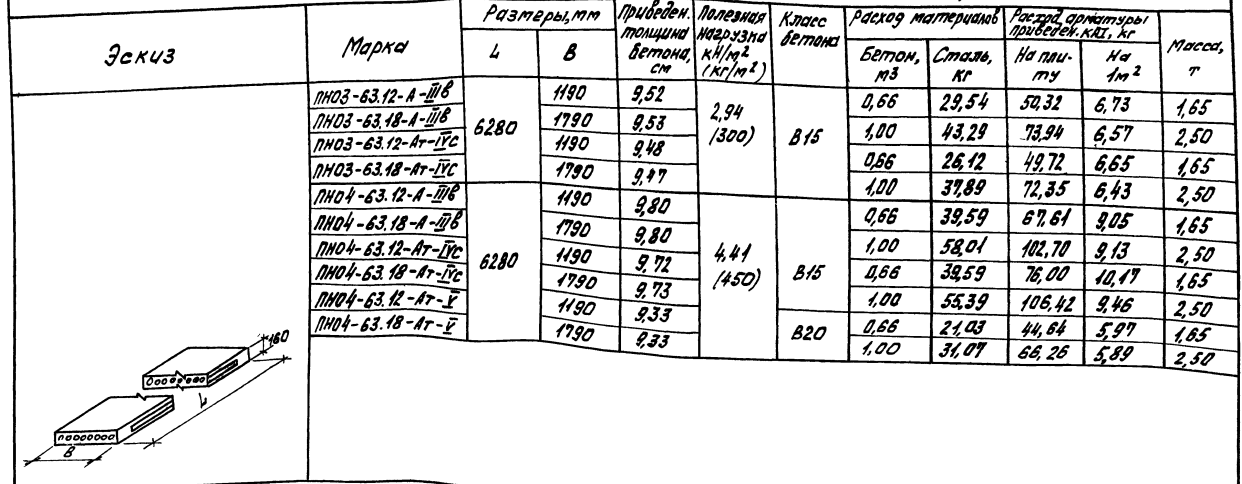 Эскиз Марка Размеры, мм Приведен. толщина бетона, см Полезная нагрузка кН/м2 (кг/м2) Класс бетона Расход материалов Расход арматуры приведен. кАI, кг Масса, т
L B Бетон, м3 Сталь, кг На плиту На 1м2
ПНО3-63.12-А-IIIв 6280 1190 9,52 2,94 (300) В15 0,66 29,54 50,32 6,73 1,65
ПНО3-63.18-А-IIIв 1790 9,53 1,00 43,29 73,94 6,57 2,50
ПНО3-63.12-Ат-IVс 1190 9,48 0,66 26,12 49,72 6,65 1,65
ПНО3-63.18-Ат-IVс 1790 9,47 1,00 37,89 72,35 6,43 2,50
ПНО4-63.12-А-IIIв 6280 1190 9,80 4,41 (450) В15 0,66 39,59 67,61 9,05 1,65
ПНО4-63.18-А-IIIв 1790 9,80 1,00 58,01 102,70 9,13 2,50
ПНО4-63.12-Ат-IVс 1190 9,72 0,66 39,59 76,00 10,17 1,65
ПНО4-63.18-Ат-IVс 1790 9,73 1,00 55,39 106,42 9,46 2,50
ПНО4-63.12-Ат-V 1190 9,33 В20 0,66 21,03 44,64 5,97 1,65
ПНО4-63.18-Ат-V 1790 9,33 1,00 31,07 66,26 5,89 2,50
160
L
B